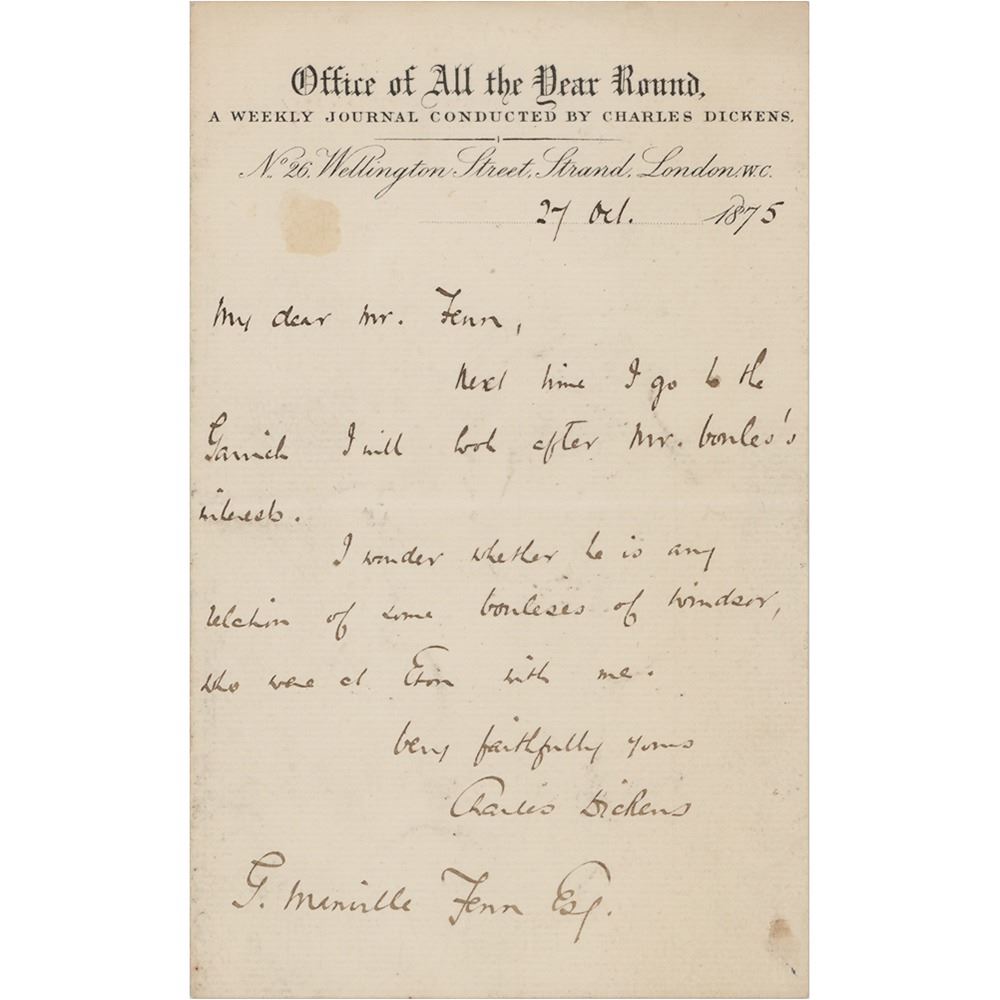 Office of All the Year Round,
A WEEKLY JOURNAL CONDUCTED BY CHARLES DICKENS.
No. 26, Wellington Street, Strand, London, W.C.
27 Oct. 1875
My dear Mr. Fenn,
Next time I go to the
Garrick I will look after Mr. 
interests.
I wonder whether he is any
relation of some of Windsor,
who were at Eton with me.
Very faithfully yours
Charles Dickens
G. Manville Fenn Esq.